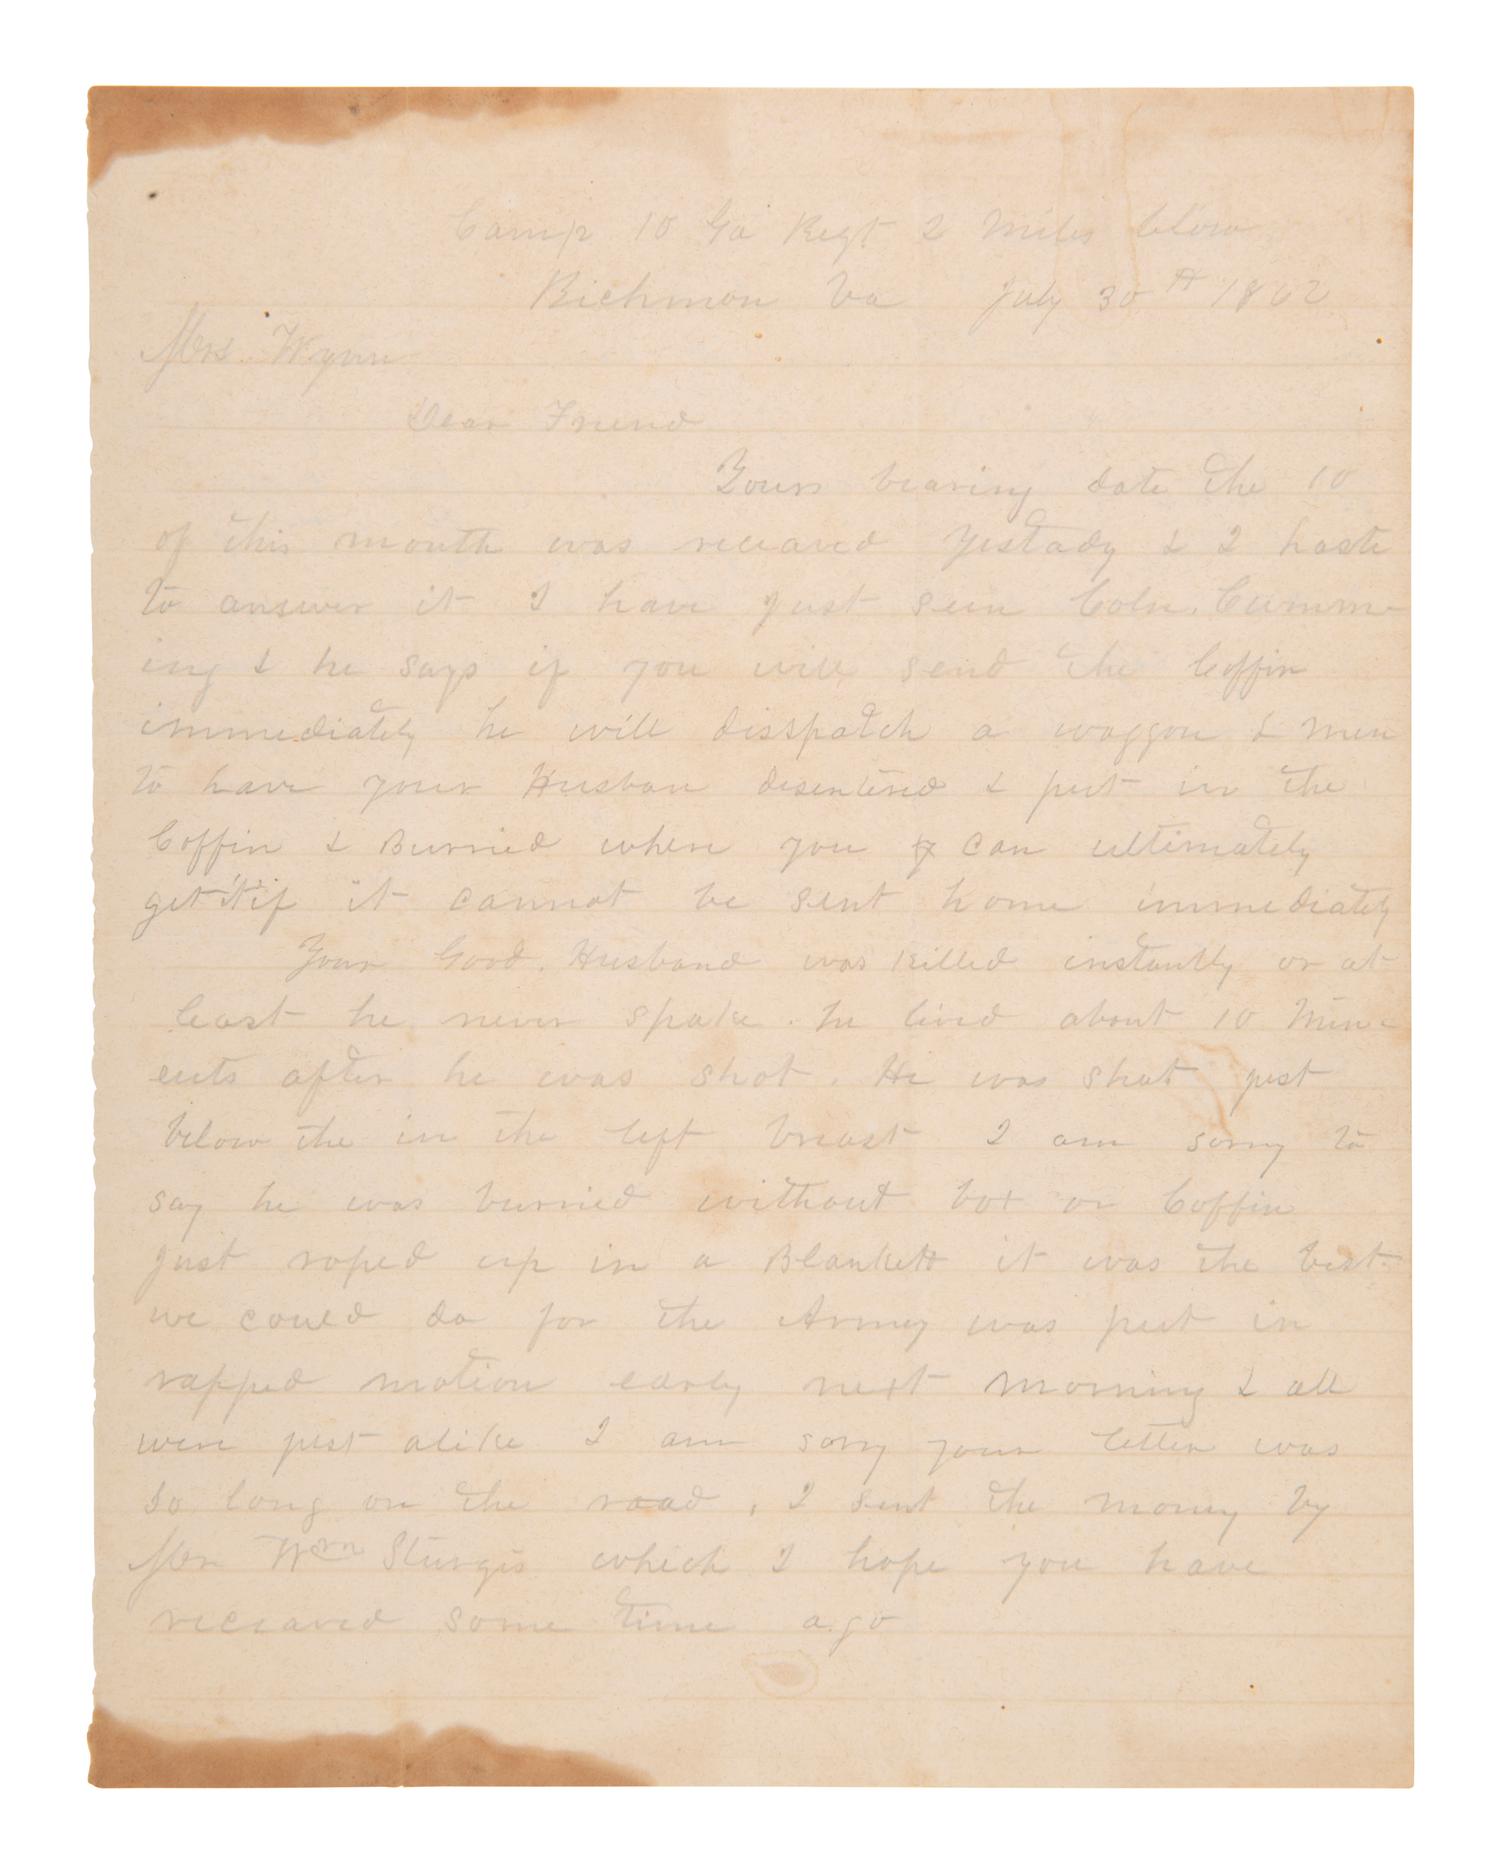 Camp 10 Ga Regt 2 Miles below
Richmon Va July 30th 1862
Mrs. Wynn
Dear Friend
Yours bearing date the 10
of this month was receaved yestady & I haste
to answer it I have just seen Coln. Cumm-
ing & he says if you will send the Coffin
immediately he will disspatch a waggon & men
to have your Husban disentered & put in the
Coffin & Burried where you can ultimately
get it if it cannot be sent home immediately
Your Good. Husband was killed instantly or at
least he never spake. he lived about 10 Min-
euts after he was shot. He was shot just
below the in the left breast I am sorry to
say he was burried without box or Coffin
just roped up in a Blankett it was the best
we could do for the Army was put in
rapped motion early next morning & all
were just alike I am sorry your letter was
so long on the road, I sent the money by
Mr Wm Sturgis which I hope you have
receaved some time ago